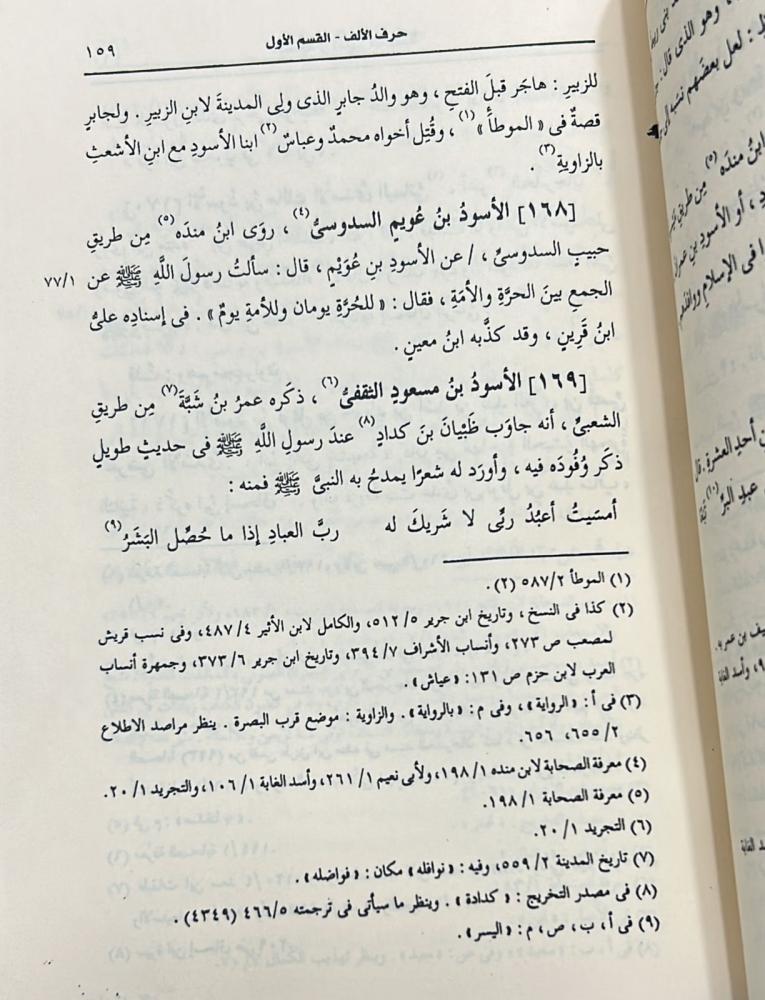 حرف الألف - القسم الأول ١٥٩
للزبيرِ : هاجَر قبلَ الفتحِ ، وهو والدُ جابرٍ الذى ولِى المدينةَ لابنِ الزبيرِ . ولجابرٍ
قصةٌ فى « الموطأِ »(١) ، وقُتِل أخواه محمدٌ وعباسٌ(٢) ابنا الأسودِ مع ابنِ الأشعثِ
بالزاويةِ(٣) .
[١٦٨] الأسودُ بنُ عُويمٍ السدوسىُّ(٤) ، روَى ابنُ منده(٥) مِن طريقِ
حبيبٍ السدوسىِّ ، / عن الأسودِ بنِ عُوَيْمٍ ، قال : سألتُ رسولَ اللَّهِ ﷺ عن ٧٧/١
الجمعِ بينَ الحرَّةِ والأمَةِ ، فقال : « للحُرَّةِ يومان وللأمةِ يومٌ » . فى إسنادِه علىُّ
ابنُ قَرِينٍ ، وقد كذَّبه ابنُ معينٍ .
[١٦٩] الأسودُ بنُ مسعودٍ الثقفىُّ(٦) ، ذكَره عمرُ بنُ شَبَّةَ(٧) مِن طريقِ
الشعبىِّ ، أنه جاوَب ظَبْيَانَ بنَ كدادٍ(٨) عندَ رسولِ اللَّهِ ﷺ فى حديثٍ طويلٍ
ذكَر وُفُودَه فيه ، وأورَد له شعرًا يمدحُ به النبىَّ ﷺ فمنه :
أمسَيتُ أعبُدُ ربِّى لا شريكَ له ربَّ العبادِ إذا ما حُصِّل البَشَرُ(٩)
(١) الموطأ ٥٨٧/٢ (٢) .
(٢) كذا فى النسخ ، وتاريخ ابن جرير ٥١٢/٥، والكامل لابن الأثير ٤٨٧/٤، وفى نسب قريش
لمصعب ص ٢٧٣، وأنساب الأشراف ٣٩٤/٧، وتاريخ ابن جرير ٣٧٣/٦، وجمهرة أنساب
العرب لابن حزم ص ١٣١: « عياش » .
(٣) فى أ : « الرواية » ، وفى م : « بالرواية » . والزاوية : موضع قرب البصرة . ينظر مراصد الاطلاع
٦٥٥/٢، ٦٥٦.
(٤) معرفة الصحابة لابن منده ١٩٨/١، ولأبى نعيم ٢٦١/١، وأسد الغابة ١٠٦/١، والتجريد ٢٠/١.
(٥) معرفة الصحابة ١٩٨/١.
(٦) التجريد ٢٠/١.
(٧) تاريخ المدينة ٥٥٩/٢، وفيه : « نوافله » مكان : « فواضله » .
(٨) فى مصدر التخريج : « كدادة » . وينظر ما سيأتى فى ترجمته ٤٦٦/٥ (٤٣٤٩) .
(٩) فى أ ، ب ، ص ، م : « اليسر » .
وهو الذى قال :
لعل بعضَهم
ابنُ منده(٥) مِن طريقِ
، أو الأسودِ بنِ
فى الإسلامِ
أحدِ العشرةِ . قال
عبدِ البرِّ(١٠)
، وأسد الغابة